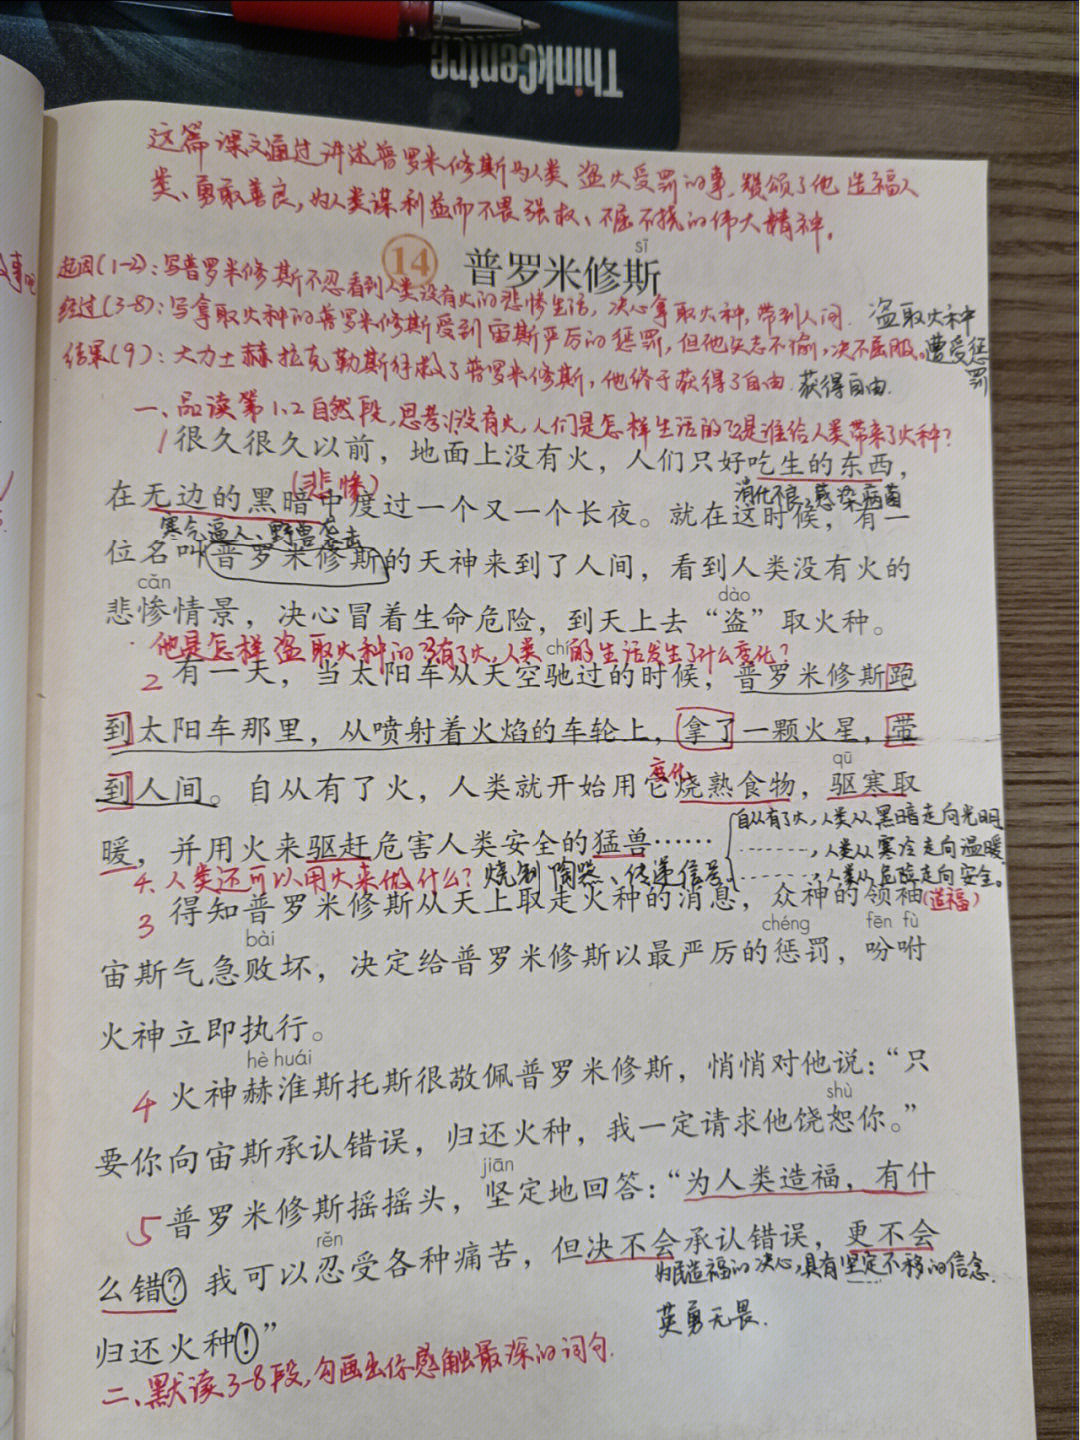 ThinkCentre
这篇课文通过讲述普罗米修斯为人类盗火受罚的事,赞颂了他造福人
类、勇敢善良,为人类谋利益而不畏强权、不屈不挠的伟大精神。
sī
14 普罗米修斯
起因(1-2):写普罗米修斯不忍看到人类没有火的悲惨生活,决心拿取火种,带到人间. 盗取火种
经过(3-8):写拿取火种的普罗米修斯受到宙斯严厉的惩罚,但他矢志不渝,决不屈服。遭受惩罚
结果(9):大力士赫拉克勒斯解救了普罗米修斯,他终于获得了自由. 获得自由.
一、品读第1、2自然段,思考:没有火,人们是怎样生活的?是谁给人类带来了火种?
1 很久很久以前,地面上没有火,人们只好吃生的东西,
(悲惨) 消化不良,感染病菌
在无边的黑暗中度过一个又一个长夜。就在这时候,有一
寒气逼人、野兽攻击
位名叫普罗米修斯的天神来到了人间,看到人类没有火的
cǎn dào
悲惨情景,决心冒着生命危险,到天上去“盗”取火种。
他是怎样盗取火种的?有了火,人类的生活发生了什么变化?
chí
2 有一天,当太阳车从天空驰过的时候,普罗米修斯跑
到太阳车那里,从喷射着火焰的车轮上,拿了一颗火星,带
变化 qū
到人间。自从有了火,人类就开始用它烧熟食物,驱寒取
自从有了火,人类从黑暗走向光明
暖,并用火来驱赶危害人类安全的猛兽……
,人类从寒冷走向温暖
4.人类还可以用火来做什么?烧制陶器、传递信号
,人类从危险走向安全。
(造福)
3 得知普罗米修斯从天上取走火种的消息,众神的领袖
bài chéng fēn fù
宙斯气急败坏,决定给普罗米修斯以最严厉的惩罚,吩咐
火神立即执行。
hè huái
4 火神赫淮斯托斯很敬佩普罗米修斯,悄悄对他说:“只
shù
要你向宙斯承认错误,归还火种,我一定请求他饶恕你。”
jiān
5 普罗米修斯摇摇头,坚定地回答:“为人类造福,有什
rěn
么错?我可以忍受各种痛苦,但决不会承认错误,更不会
为民造福的决心,具有坚定不移的信念.
归还火种!”
英勇无畏.
二、默读3-8段,勾画出你感触最深的词句.